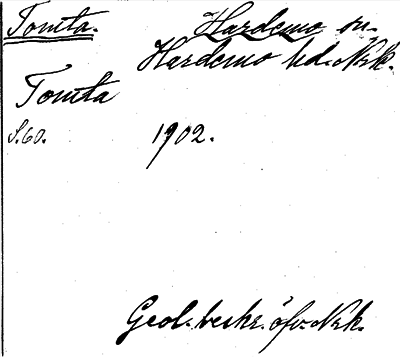 Tomta. Hardemo sn.
Hardemo hd. Nrk.
Tomta
S. 60. 1902.
Geol. beskr. öfv. Nrk.